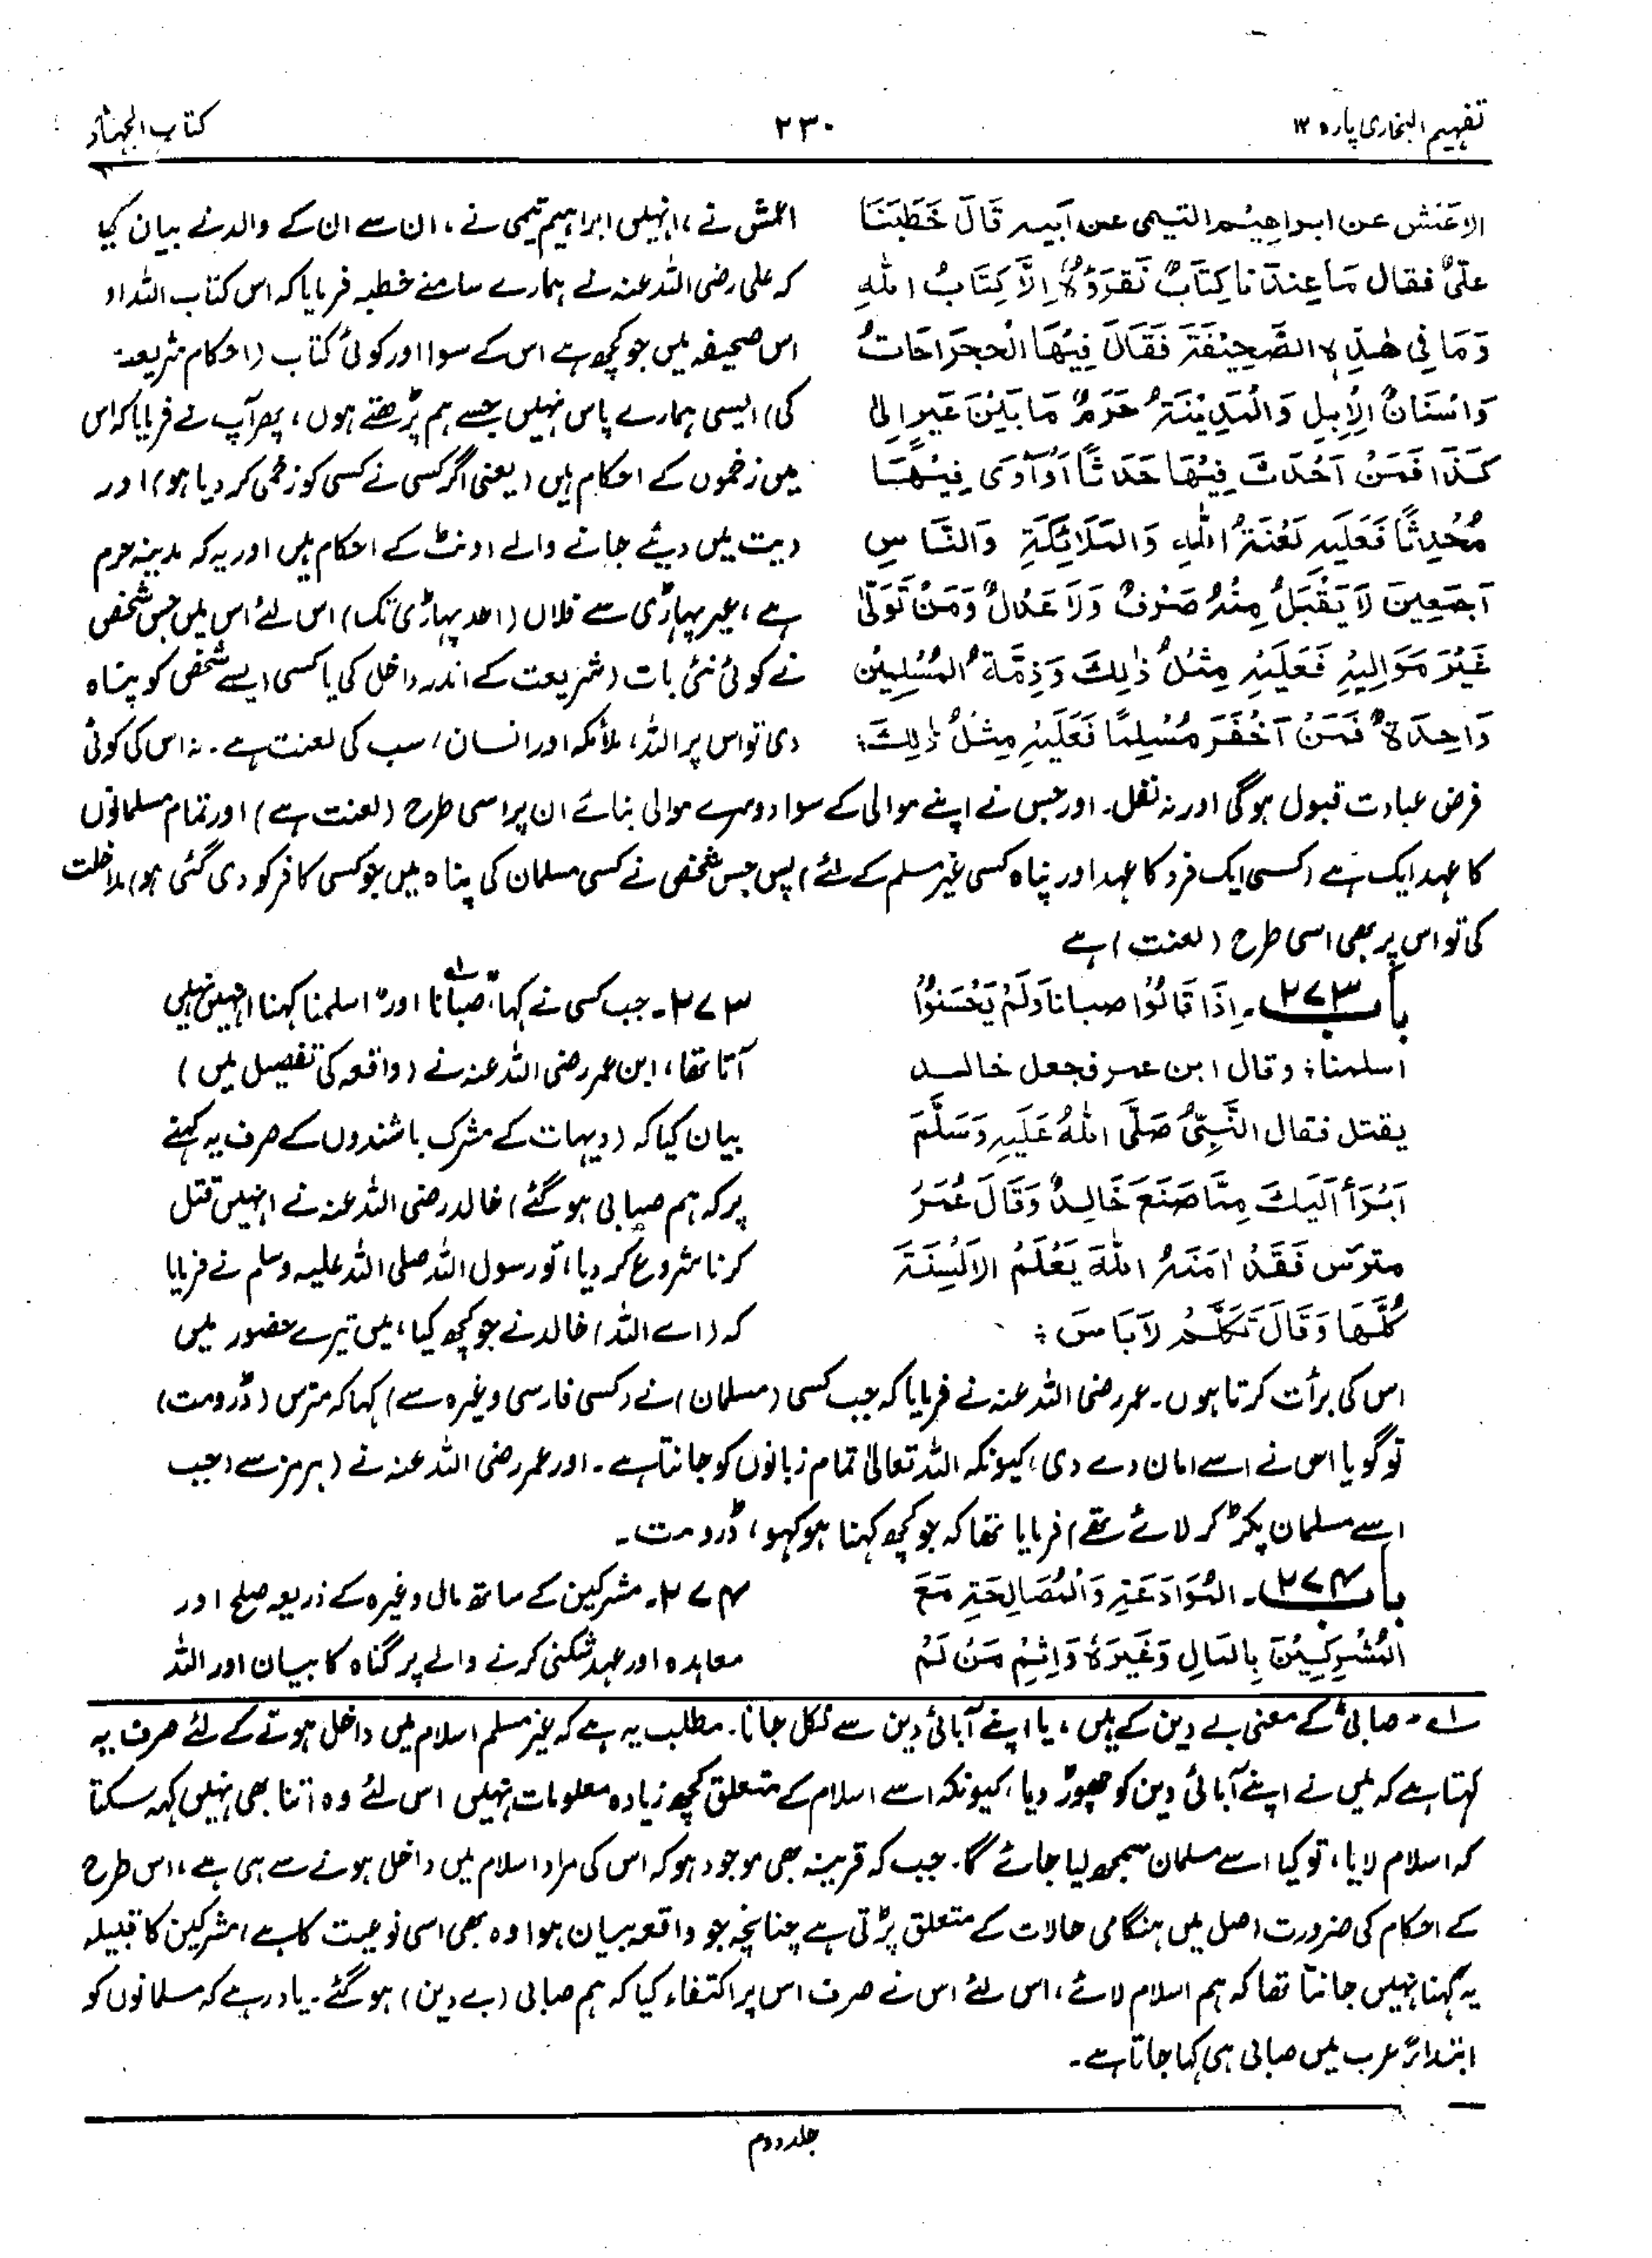 تفہیم البخاری پارہ ۱۲
۲۳۰
کتاب الجہاد
الاعَنش عن ابراھِیْم التیمی عن اَبیہ قَالَ خَطَبَنَا
عَلیٌّ فقال مَا عِندَنَا کِتَابٌ نَقرَؤُہٗ اِلَّا کِتَابُ اللہِ
وَمَا فِی ھٰذِہِ الصَّحِیْفَۃِ فَقَالَ فِیْھَا الْجَرَاحَاتُ
وَاسْنَانُ الْاِبِلِ وَالْمَدِیْنَۃُ حَرَمٌ مَا بَیْنَ عَیْرٍ اِلٰی
کَذَا فَمَنْ اَحْدَثَ فِیْھَا حَدَثًا اَوْ اٰوٰی فِیْھَا
مُحْدِثًا فَعَلَیْہِ لَعْنَۃُ اللہِ وَالْمَلَائِکَۃِ وَالنَّاسِ
اَجْمَعِیْنَ لَا یُقْبَلُ مِنْہُ صَرْفٌ وَلَا عَدْلٌ وَمَنْ تَوَلّٰی
غَیْرَ مَوَالِیْہِ فَعَلَیْہِ مِثْلُ ذٰلِکَ وَذِمَّۃُ الْمُسْلِمِیْنَ
وَاحِدَۃٌ فَمَنْ اَخْفَرَ مُسْلِمًا فَعَلَیْہِ مِثْلُ ذٰلِکَ:
اعمش نے، انہیں ابراہیم تیمی نے، ان سے ان کے والد نے بیان کیا
کہ علی رضی اللہ عنہ نے ہمارے سامنے خطبہ فرمایا کہ اس کتاب اللہ او
اس صحیفہ میں جو کچھ ہے اس کے سوا اور کوئی کتاب (احکام شریعت
کی) ایسی ہمارے پاس نہیں جسے ہم پڑھتے ہوں، پھر آپ نے فرمایا کہ اس
میں زخموں کے احکام ہیں (یعنی اگر کسی نے کسی کو زخمی کر دیا ہو) اور
دیت میں دیئے جانے والے اونٹ کے احکام ہیں اور یہ کہ مدینہ حرم
ہے، عیر پہاڑی سے فلاں (احد پہاڑی تک) اس لئے اس میں جس شخص
نے کوئی نئی بات (شریعت کے اندر داخل کی یا کسی ایسے شخص کو پناہ
دی تو اس پر اللہ، ملائکہ اور انسان، سب کی لعنت ہے۔ نہ اس کی کوئی
فرض عبادت قبول ہوگی اور نہ نفل۔ اور جس نے اپنے موالی کے سوا دوسرے موالی بنائے ان پر اسی طرح (لعنت ہے) اور تمام مسلمانوں
کا عہد ایک ہے (کسی ایک فرد کا عہد اور پناہ کسی غیر مسلم کے لئے) پس جس شخص نے کسی مسلمان کی پناہ میں جو کسی کافر کو دی گئی ہو) مداخلت
کی تو اس پر بھی اسی طرح (لعنت) ہے
باب ۲۷۳۔ اِذَا قَالُوْا صبانا وَلَمْ یَحْسَنُوْا
اسلمنا: وقال ابن عمر فجعل خالد
یقتل فقال النَّبِیُّ صَلَّی اللہُ عَلَیْہِ وَسَلَّمَ
اَبْرَأُ اِلَیْکَ مِمَّا صَنَعَ خَالِدٌ وَقَالَ عُمَرُ
مترَسْ فَقَدْ اٰمَنَہُ اللہَ یَعْلَمُ الاَلْسِنَۃَ
کُلَّھَا وَقَالَ تَکَلَّمْ لَا بَاسَ :
۲۷۳۔ جب کسی نے کہا "صبانا" اور "اسلمنا کہنا انہیں نہیں
آتا تھا، ابن عمر رضی اللہ عنہ نے (واقعہ کی تفصیل میں)
بیان کیا کہ (دیہات کے مشرک باشندوں کے صرف یہ کہنے
پر کہ ہم صابی ہو گئے) خالد رضی اللہ عنہ نے انہیں قتل
کرنا شروع کر دیا، تو رسول اللہ صلی اللہ علیہ وسلم نے فرمایا
کہ (اے اللہ) خالد نے جو کچھ کیا، میں تیرے حضور میں
اس کی برأت کرتا ہوں۔ عمر رضی اللہ عنہ نے فرمایا کہ جب کسی (مسلمان) نے (کسی فارسی وغیرہ سے) کہا کہ مترس (ڈرو مت)
تو گویا اس نے اسے امان دے دی، کیونکہ اللہ تعالیٰ تمام زبانوں کو جانتا ہے۔ اور عمر رضی اللہ عنہ نے (ہرمز سے) جب
اسے مسلمان پکڑ کر لائے تھے) فرمایا تھا کہ جو کچھ کہنا ہو کہو، ڈرو مت۔
باب ۲۷۴۔ الْمُوَادَعَۃِ وَالْمُصَالِحَۃِ مَعَ
الْمُشْرِکِیْنَ بِالْمَالِ وَغَیْرِہٖ وَاِثْمِ مَنْ لَمْ
۲۷۴۔ مشرکین کے ساتھ مال وغیرہ کے ذریعہ صلح اور
معاہدہ اور عہد شکنی کرنے والے پر گناہ کا بیان اور اللہ
لے۔ صابی کے معنی بے دین کے ہیں، یا اپنے آبائی دین سے نکل جانا۔ مطلب یہ ہے کہ غیر مسلم اسلام میں داخل ہونے کے لئے صرف یہ
کہتا ہے کہ میں نے اپنے آبائی دین کو چھوڑ دیا، کیونکہ اسے اسلام کے متعلق کچھ زیادہ معلومات نہیں اس لئے وہ اتنا بھی نہیں کہہ سکتا
کہ اسلام لایا، تو کیا اسے مسلمان سمجھ لیا جائے گا۔ جب کہ قرینہ بھی موجود ہو کہ اس کی مراد اسلام میں داخل ہونے سے ہی ہے، اس طرح
کے احکام کی ضرورت اصل میں ہنگامی حالات کے متعلق پڑتی ہے چنانچہ جو واقعہ بیان ہوا وہ بھی اسی نوعیت کا ہے، مشرکین کا قبیلہ
یہ کہنا نہیں جانتا تھا کہ ہم اسلام لائے، اس لئے اس نے صرف اس پر اکتفاء کیا کہ ہم صابی (بے دین) ہو گئے۔ یاد رہے کہ مسلمانوں کو
ابتداءً عرب میں صابی ہی کہا جاتا ہے۔
جلد دوم